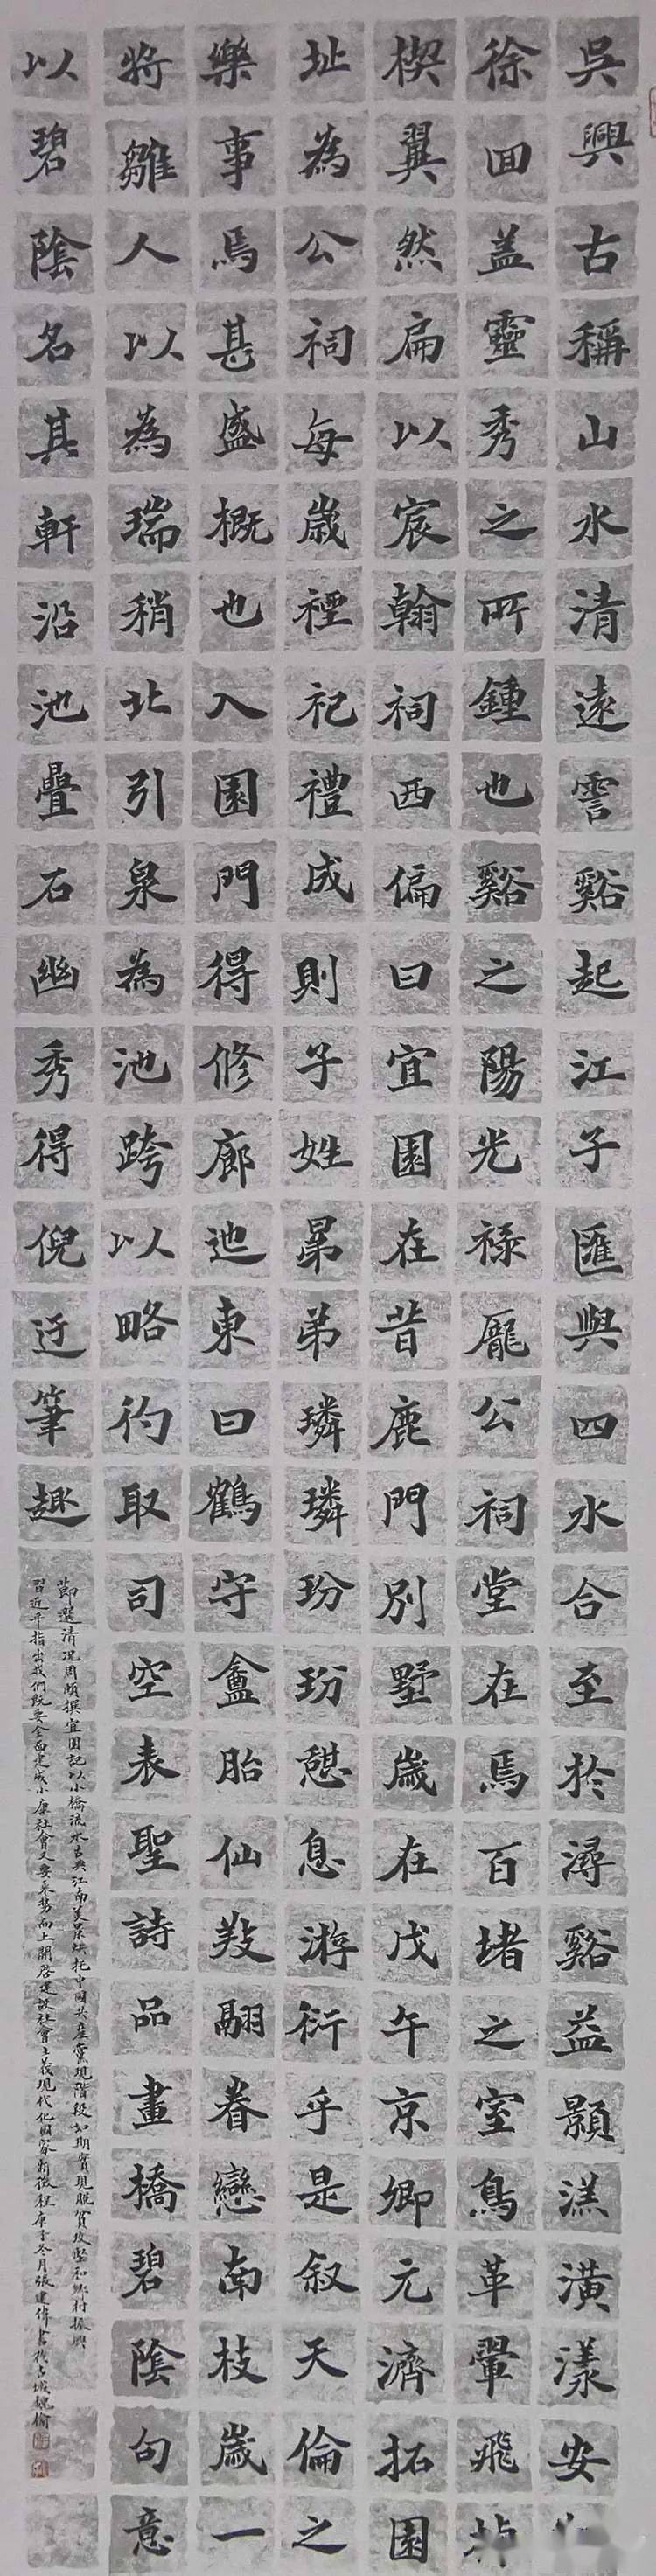 吳興古稱山水清遠霅谿起江子匯與四水合至於潯谿益顥溔潢漾安
徐回盖靈秀之所鍾也谿之陽光祿龐公祠堂在焉百堵之室鳥革翬飛
楔翼然扁以宸翰祠西偏曰宜園在昔鹿門別墅歲在戊午京卿元濟拓園
址為公祠每歲禋祀禮成則子姓晜弟璘璘玢玢憩息游衍乎是叙天倫之
樂事焉甚盛概也入園門得修廊迆東曰鶴守盦胎仙羖翮眷戀南枝歲一
將雛人以為瑞稍北引泉為池跨以略彴取司空表聖詩品畫橋碧陰句意
以碧陰名其軒沿池疊石幽秀得倪迂筆趣
節選清況周頤撰宜園記以小橋流水古典江南美景烘托中國共產黨現階段如期實現脫貧攻堅和鄉村振興
習近平指出我們既要全面建成小康社會又要乘勢而上開啓建設社會主義現代化國家新徵程庚子冬月張建偉書於古城魏榆